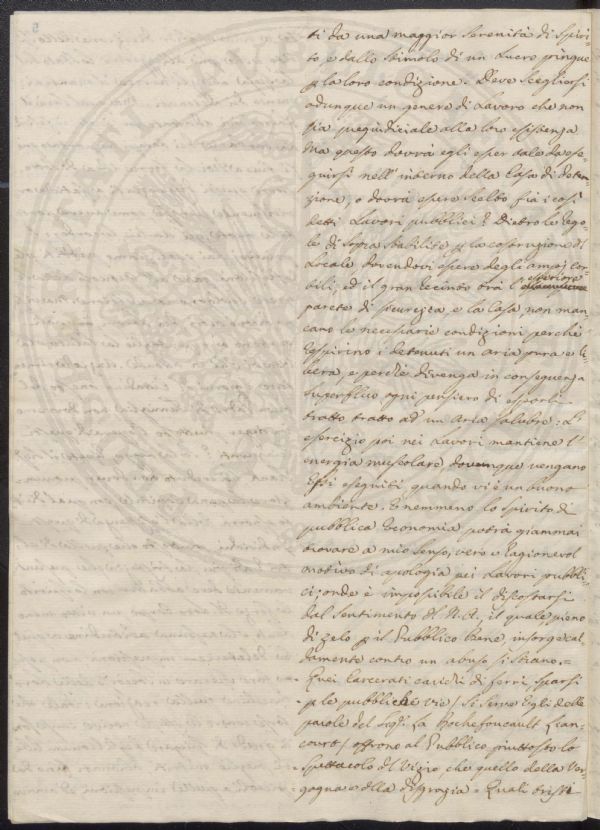 ti da una maggior serenità di Spiri-
to, e dallo stimolo di un Lucro pingue
p la loro condizione. Deve scegliersi
adunque un genere di Lavoro che non
sia pregiudiciale alla loro esistenza
Ma questo dovrà egli esser tale da ese-
guirsi nell' interno della Casa di deten-
zione, o dovrà essere scelto fra i così
detti Lavori pubblici? Dietro le rego-
le di sopra stabilite p la costruzione del
Locale, dovendovi essere degli ampj cor-
tili, ed il gran recinto trà l' esteriore
parete di sicurezza, e la Casa non man-
cano le necessarie condizioni perchè
respirino i detenuti un aria pura e li-
bera, e perchè divenga in conseguenza
superfluo ogni pensiero di esporli
tratto tratto ad un Aria salubre: L'
esercizio poi nei Lavori mantiene l'
energia muscolare, dovunque vengano
Essi eseguiti quando vi è un buono
ambiente. E nemmeno lo spirito di
pubblica Economia potrà giammai
trovare a mio senso, vero o ragionevol
motivo di apologia pei Lavori pubbli-
ci; onde è impossibile il discostarsi
dal sentimento del N. A., il quale pieno
di zelo p il Pubblico bene, insorge cal-
damente contro un abuso sì strano. =
Quei Carcerati carichi di ferri, sparsi
p le pubbliche vie / si serve Egli delle
parole del Sigr. La Rochefoucault Lian-
court / offrono al Pubblico piuttosto lo
spettacolo del Vizio, che quello della Ver-
gogna e della disgrazia. Quali triste